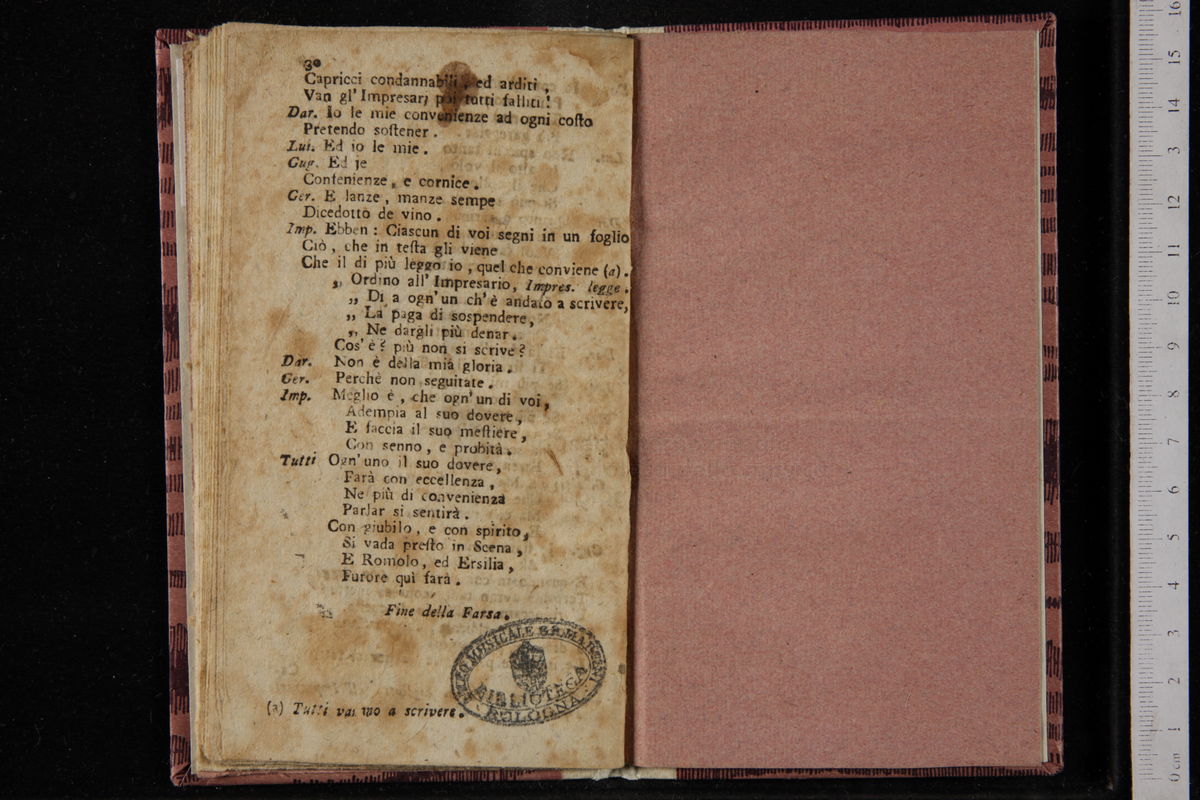 30
Capricci condannabili, ed arditi,
Van gl'Impresarj poi tutti falliti!
Dar. Io le mie convenienze ad ogni coſto
Pretendo ſoſtener.
Lui. Ed io le mie.
Gug. Ed je
Confenienze, e cornice.
Ger. E lanze, manze sempe
Dicedotto de vino.
Imp. Ebben: Ciascun di voi segni in un foglio
Ciò, che in teſta gli viene
Che il di più leggo io, quel che conviene (a).
„ Ordino all'Impresario, Impres. legge.
„ Di a ogn'un ch'è andato a scrivere,
„ La paga di sospendere,
„ Ne dargli più denar.
Cos'è? più non si scrive?
Dar. Non è della mia gloria.
Ger. Perchè non seguitate.
Imp. Meglio è, che ogn'un di voi,
Adempia al suo dovere,
E faccia il suo meſtiere,
Con senno, e probità.
Tutti Ogn'uno il suo dovere,
Farà con eccellenza,
Ne più di convenienza
Parlar si sentirà.
Con giubilo, e con spirito,
Si vada preſto in Scena,
E Romolo, ed Ersilia,
Furore quì farà.
Fine della Farsa.
LICEO MUSICALE G.B. MARTINI
BIBLIOTECA
BOLOGNA
(a) Tutti vanno a scrivere.
0 cm 1 2 3 4 5 6 7 8 9 10 11 12 13 14 15 16